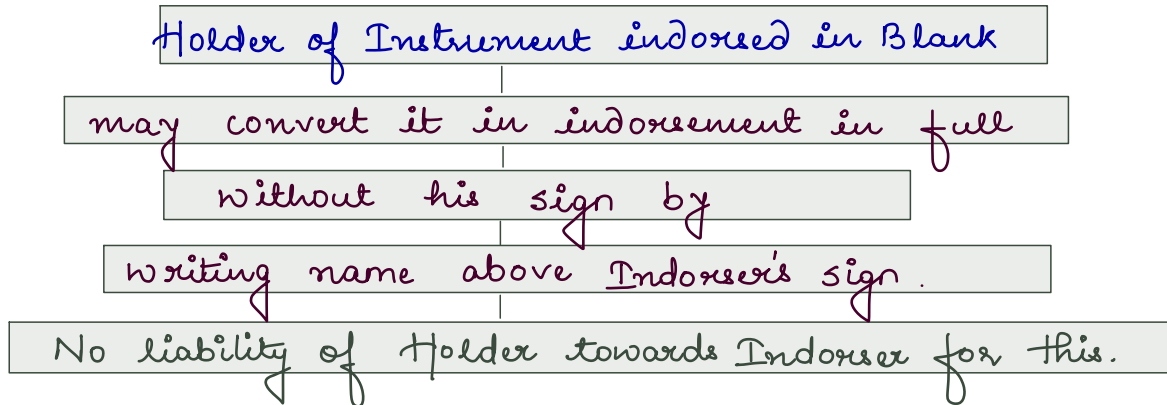 Holder of Instrument indorsed in Blank
may convert it in indorsement in full
without his sign by
writing name above Indorser's sign.
No liability of Holder towards Indorser for this.